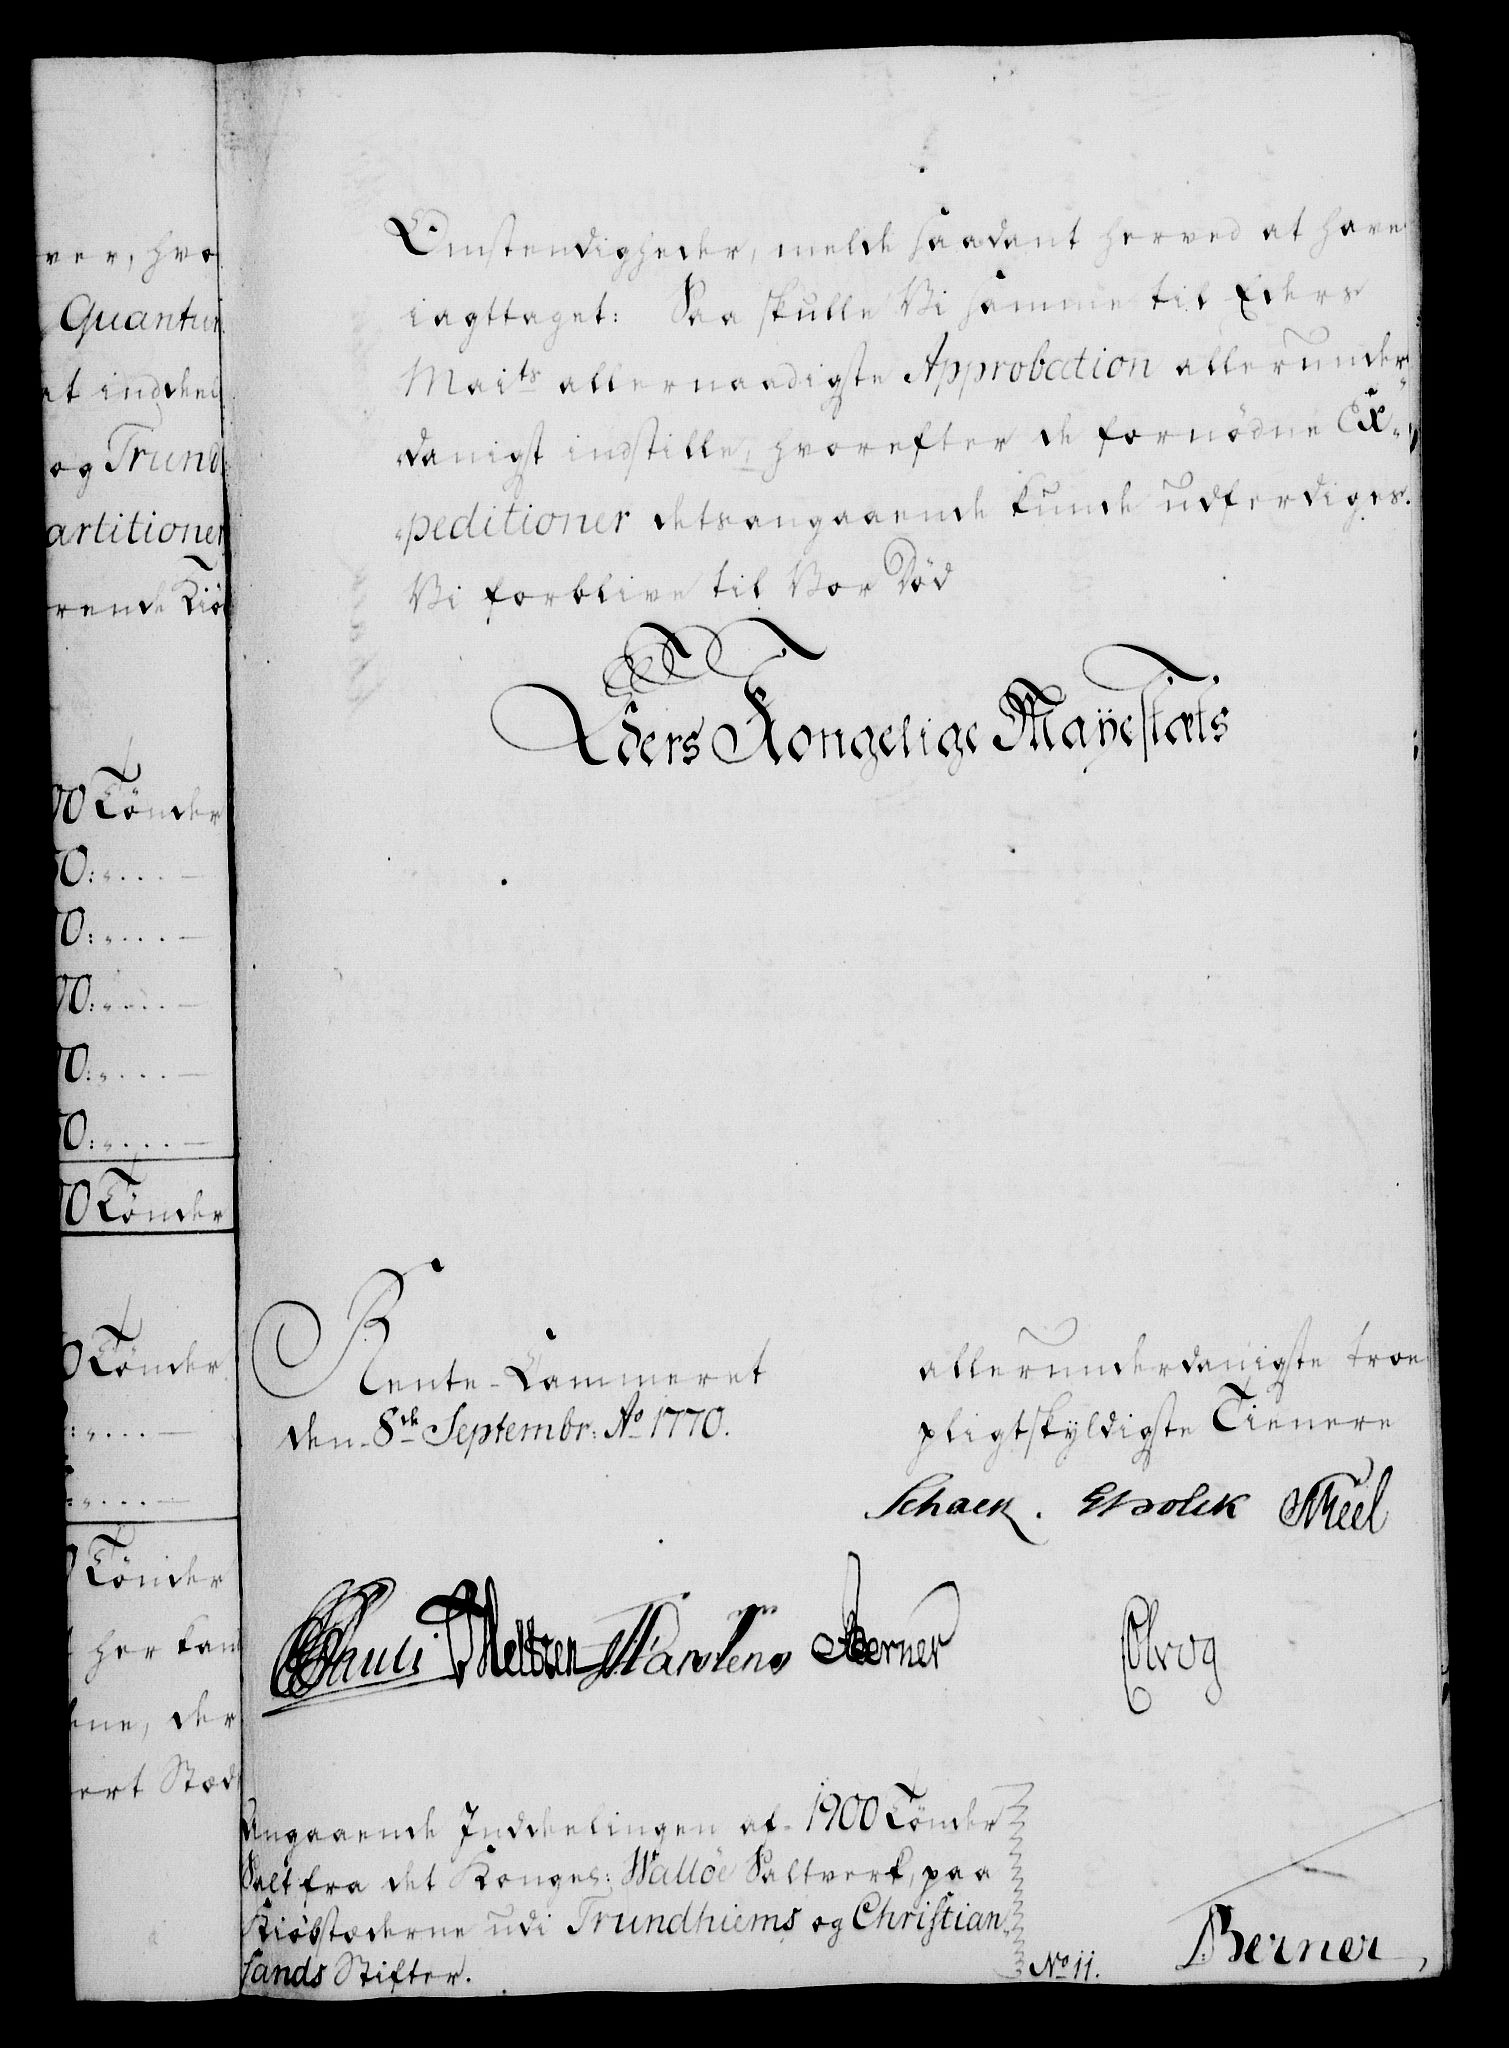 ver, hvo
Quantum
at inddeel
og Trund
artitioner
rende Kiøb
00 Tønder
50:„....—
0:„....—
00:„....—
0:„....—
0:„....—
0 Tønder
0 Tønder
:„....—
:„....—
0 Tønder
her kand
ene, der
ert Stæd
Omstendigheder, melde saadant herved at have
iagttaget: Saa skulle Vi samme til Eders
Maits allernaadigste Approbation allerunder„
danigst indstille, hvorefter de fornødne Ex„
„peditioner detsangaaende kunde udferdiges.
Vi forblive til Vor Død
Eders Kongelige Mayestæts
Rente-Cammeret
den 8de Septembr: Ao 1770.
allerunderdanigste troe
pligtskyldigste Tienere
Schack. Holck Theel
Pauli Meltzen Martens Berner
Elvog
Angaaende Inddeelingen af 1900 Tønder
Salt fra det Kongel: Walløe Saltverk, paa
Kiøbstæderne udi Trundhiems og Christian„
sands Stifter.
No 11.
Berner,